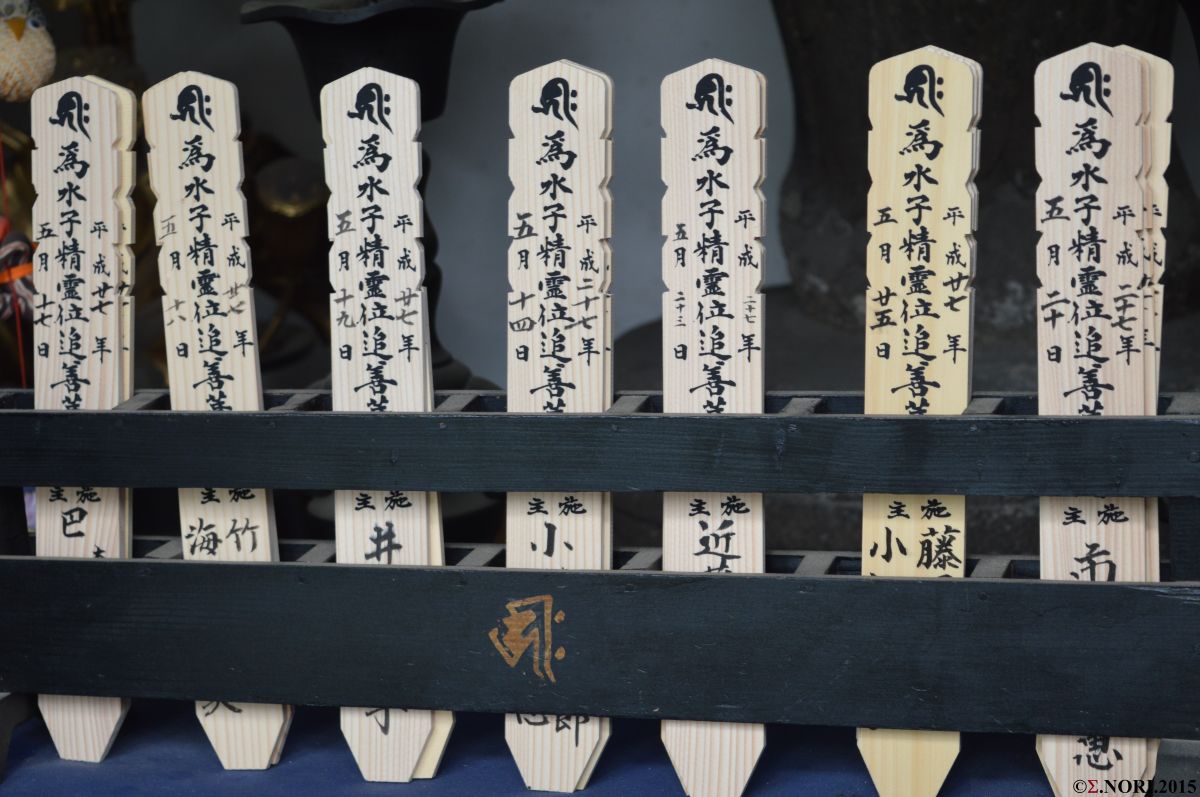 為水子精霊位追善
平成廿七年
五月十七日
施主
巴
為水子精霊位追善
平成廿七年
五月十八日
施主
竹
海
為水子精霊位追善菩
平成廿七年
五月十九日
施主
井
子
為水子精霊位追善
平成二十七年
五月十四日
施主
小
郎
為水子精霊位追善菩
平成二十七年
五月二十三日
施主
近
為水子精霊位追善菩
平成廿七年
五月廿五日
施主
藤
小
為水子精霊位追善菩
平成二十七年
五月二十日
施主
©Σ.NORI.2015